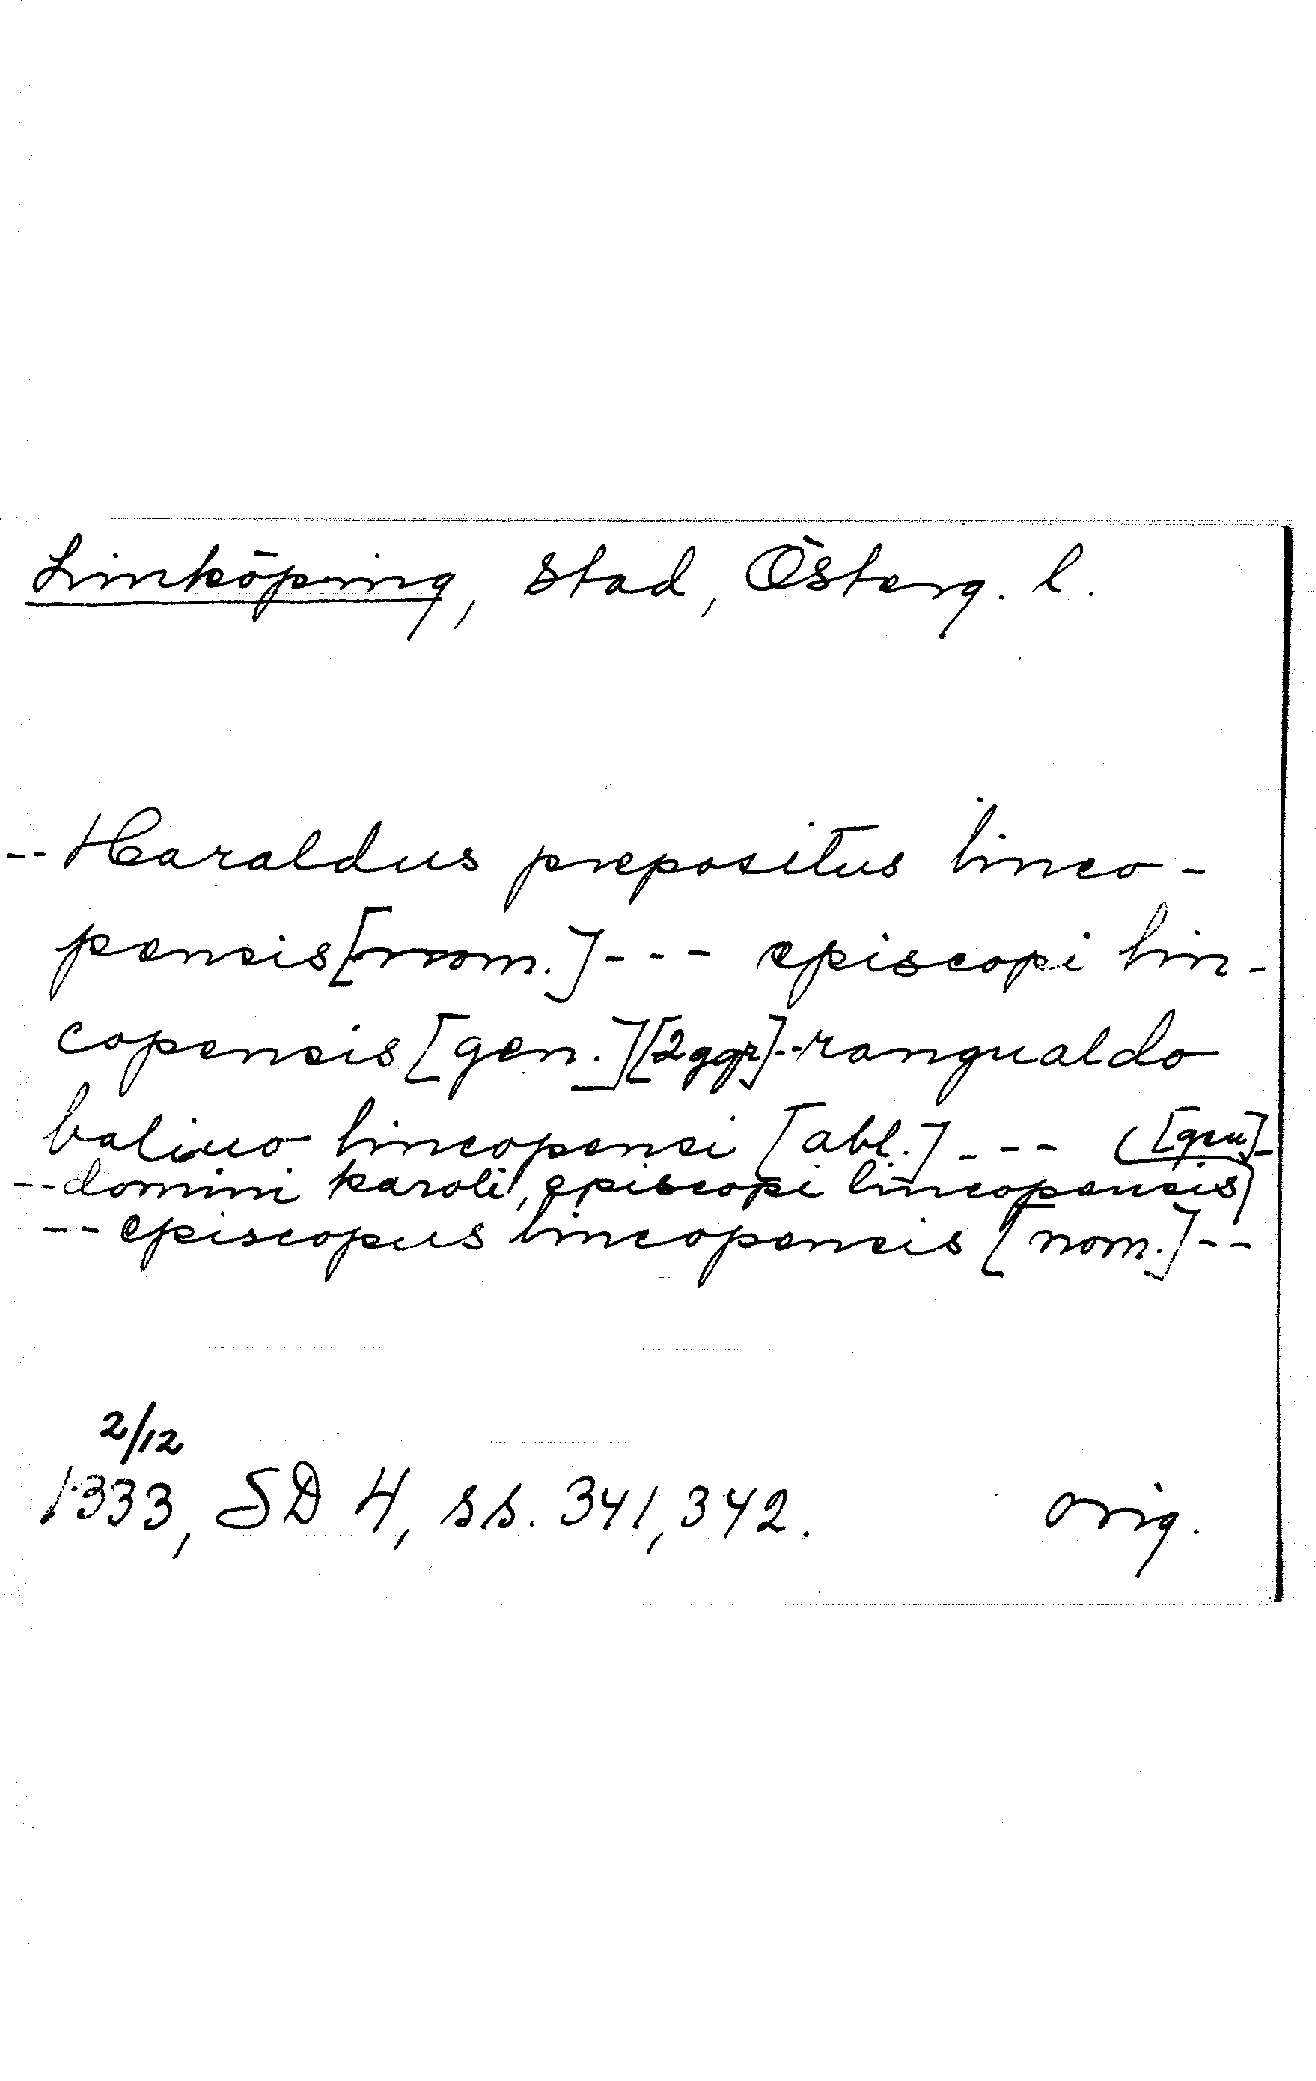 Linköping, stad, Österg. l.
-- Haraldus prepositus linco-
pensis [nom.] --- episcopi lin-
copensis [gen.] [2 ggr] -- rangualdo
baliuo lincopensi [abl.] --- ([gen]-
-- domini karoli, episcopi lincopensis)
-- episcopus lincopensis [nom.] --
2/12
1333, SD 4, ss. 341, 342. orig.